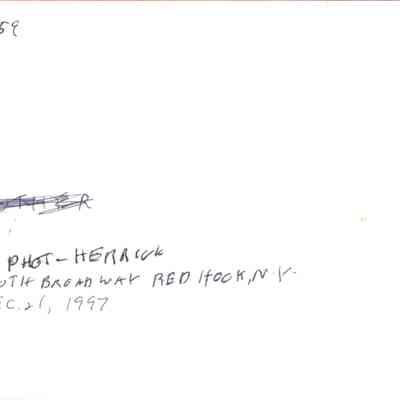 59
PHOT- HERRICK
UTH BROADWAY RED HOCK, N.Y.
EC. 21, 1997